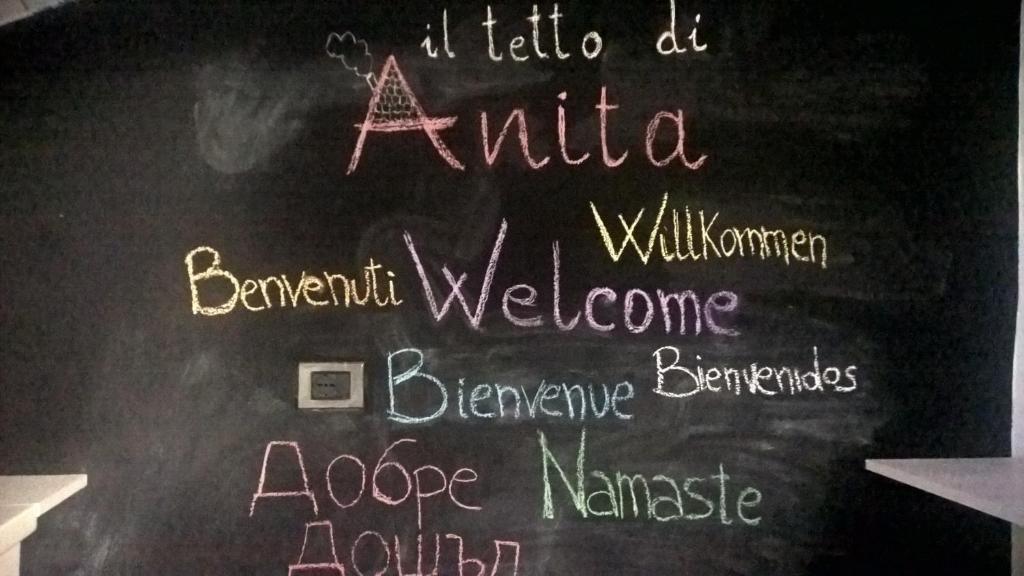 il tetto di
Anita
Willkommen
Benvenuti Welcome
Bienvenue Bienvenidos
Добре Namaste
Дошъл